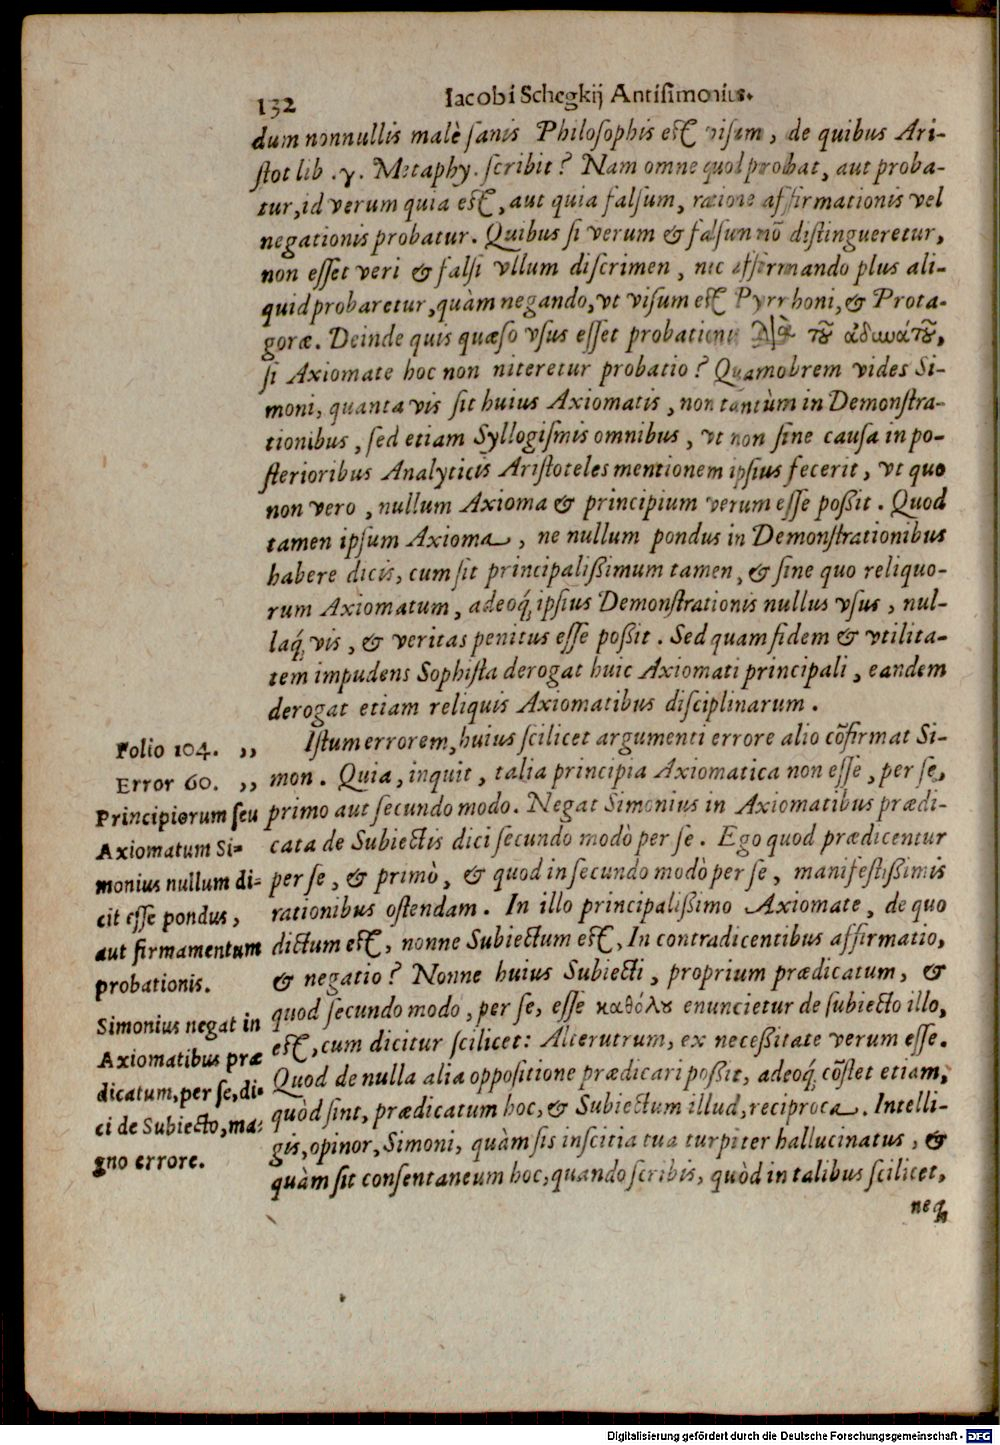 132
Iacobi Schegkij Antisimonius.
dum nonnullis malè sanis Philosophis est visum, de quibus Ari-
stot lib .γ. Metaphy. scribit? Nam omne quod probat, aut proba-
tur, id verum quia est, aut quia falsum, ratione affirmationis vel
negationis probatur. Quibus si verum & falsum nõ distingueretur,
non esset veri & falsi vllum discrimen, nec affirmando plus ali-
quid probaretur, quàm negando, vt visum est Pyrrhoni, & Prota-
goræ. Deinde quis quæso vsus esset probationi τοῦ ἀδυνάτου,
si Axiomate hoc non niteretur probatio? Quamobrem vides Si-
moni, quanta vis sit huius Axiomatis, non tantùm in Demonstra-
tionibus, sed etiam Syllogismis omnibus, vt non sine causa in po-
sterioribus Analyticis Aristoteles mentionem ipsius fecerit, vt quo
non vero, nullum Axioma & principium verum esse poßit. Quod
tamen ipsum Axioma, ne nullum pondus in Demonstrationibus
habere dicis, cum sit principalißimum tamen, & sine quo reliquo-
rum Axiomatum, adeoq́; ipsius Demonstrationis nullus vsus, nul-
laq́; vis, & veritas penitus esse poßit. Sed quam fidem & vtilita-
tem impudens Sophista derogat huic Axiomati principali, eandem
derogat etiam reliquis Axiomatibus disciplinarum.
Istum errorem, huius scilicet argumenti errore alio cõfirmat Si-
mon. Quia, inquit, talia principia Axiomatica non esse, per se,
primo aut secundo modo. Negat Simonius in Axiomatibus prædi-
cata de Subiectis dici secundo modò per se. Ego quod prædicentur
per se, & primò, & quod in secundo modò per se, manifestißimis
rationibus ostendam. In illo principalißimo Axiomate, de quo
dictum est, nonne Subiectum est, In contradicentibus affirmatio,
& negatio? Nonne huius Subiecti, proprium prædicatum, &
quod secundo modo, per se, esse καθόλου enuncietur de subiecto illo,
est, cum dicitur scilicet: Alterutrum, ex necessitate verum esse.
Quod de nulla alia oppositione prædicari poßit, adeoq́; cõstet etiam,
quòd sint, prædicatum hoc, & Subiectum illud, reciproca. Intelli-
gis, opinor, Simoni, quàm sis inscitia tua turpiter hallucinatus, &
quàm sit consentaneum hoc, quando scribis, quòd in talibus scilicet,
neq;
Folio 104. ,,
Error 60. ,,
Principiorum seu
Axiomatum Si-
monius nullum di-
cit esse pondus,
aut firmamentum
probationis.
Simonius negat in
Axiomatibus præ
dicatum, per se, di-
ci de Subiecto, ma-
gno errore.
Digitalisierung gefördert durch die Deutsche Forschungsgemeinschaft - DFG